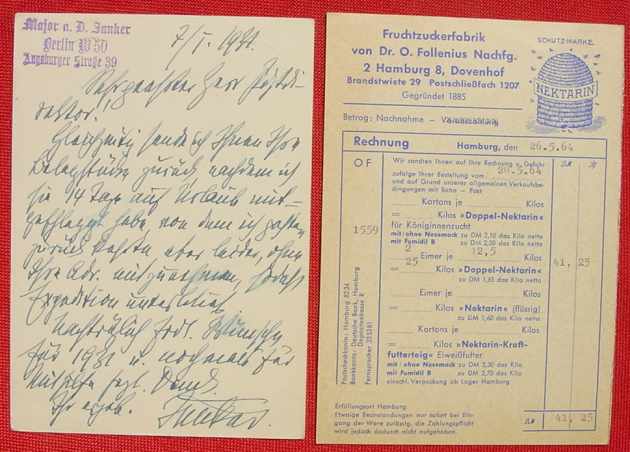 Major a. D. Junker
Berlin W 50
Augsburger Straße 39
7/I. 1931.
Sehrgeehrter Herr
Gleichzeitig sende ich Ihnen Ihre
Belegstücke zurück, nachdem ich
sie 14 Tage auf Urlaub mit-
habe, von dem ich gestern
zurück kehrte, aber leider, ohne
Ihre Adr. mitzunehmen, sodass
Expedition unterblieb.
Nachträglich Wünsche
für 1931 u. nochmals für
Dank
Ihr ergeb.
Junker.
Fruchtzuckerfabrik
von Dr. O. Follenius Nachfg.
2 Hamburg 8, Dovenhof
Brandstwiete 29 Postschließfach 1207
Gegründet 1885
SCHUTZMARKE
NEKTARIN
Betrag: Nachnahme –
Rechnung Hamburg, den 26.5.64
OF
Wir sandten Ihnen auf Ihre Rechnung u. Gefahr
zufolge Ihrer Bestellung vom 5.64
und auf Grund unserer allgemeinen Verkaufsbe-
dingungen mit Bahn – Post
Kartons je Kilos
= Kilos »Doppel-Nektarin«
für Königinnenzucht
1559
mit/ohne Nosemack zu DM 2,10 das Kilo netto
mit Fumidil B zu DM 2,30 das Kilo netto
2 Eimer je 12,5 Kilos
= 25 Kilos »Doppel-Nektarin« 41,25
zu DM 1,65 das Kilo netto
Eimer je Kilos
= Kilos »Nektarin« (flüssig)
zu DM 1,60 das Kilo netto
Kartons je Kilos
= Kilos »Nektarin-Kraft-
futterteig« Eiweißfutter
mit/ohne Nosemack zu DM 2,30 das Kilo
mit Fumidil B zu DM 2,70 das Kilo
einschl. Verpackung ab Lager Hamburg
Postscheckkonto: Hamburg 8234
Bankkonto: Deutsche Bank, Hamburg
Depositenkasse R
Fernsprecher
Erfüllungsort Hamburg
Etwaige Beanstandungen nur sofort bei Ein-
gang der Ware zulässig, die Zahlungspflicht
wird jedoch dadurch nicht aufgehoben.
41,25